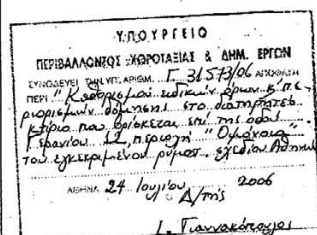 ΥΠΟΥΡΓΕΙΟ
ΠΕΡΙΒΑΛΛΟΝΤΟΣ - ΧΩΡΟΤΑΞΙΑΣ & ΔΗΜ. ΕΡΓΩΝ
ΣΥΝΟΔΕΥΕΙ ΤΗΝ ΥΠ. ΑΡΙΘΜ. Γ 31573/06 ΑΠΟΦΑΣΗ
ΠΕΡΙ "Καθορισμού ειδικών όρων κ' πε-
ριορισμών δόμησης στο διατηρητέο
κτίριο που βρίσκεται επί της οδού
Γερανίου 12, περιοχή "Ομόνοια"
του εγκεκριμένου ρυμοτ. σχεδίου Αθηνών
ΑΘΗΝΑ 24 Ιουλίου 2006
Δ/της
Ι. Γιαννακόπουλος